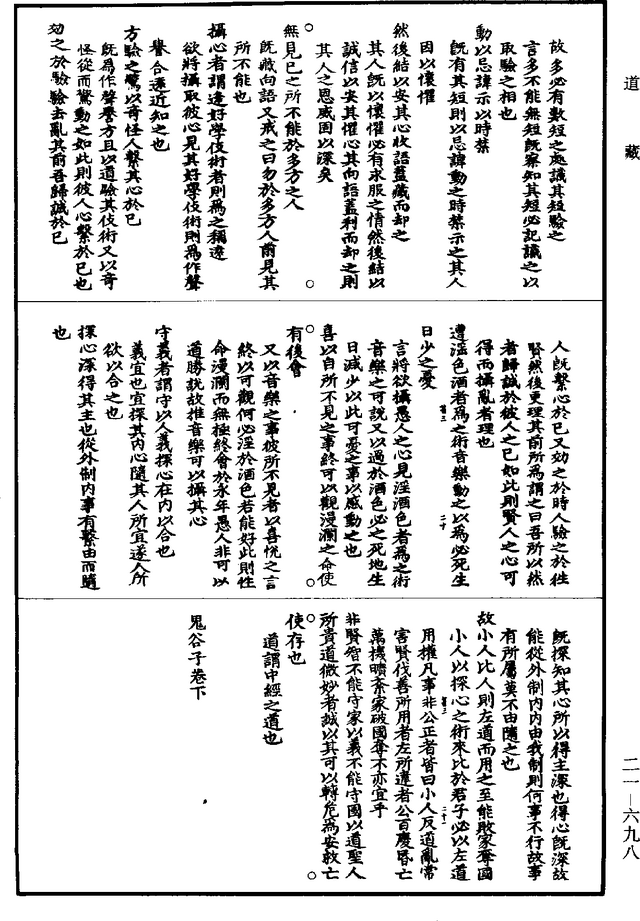 道藏
故多必有數短之處識其短驗之
言多不能無短既察知其短必記識之以
取驗之相也
動以忌諱示以時禁
既有其短則以忌諱動之時禁示之其人
因以懷懼
然後結以安其心收語蓋藏而却之
其人既以懷懼必有求服之情然後結以
誠信以安其懼心其向語蓋利而却之則
其人之恩威固以深矣
無見已之所不能於多方之人
既藏向語又戒之曰勿於多方人前見其
所不能也
攝心者謂逢好學伎術者則為之稱遠
欲將攝取彼心見其好學伎術則為作聲
譽合遠近知之也
方驗之驚以奇怪人繫其心於已
既為作聲譽方且以道驗其伎術又以奇
怪從而驚動之如此則彼人心繫於已也
効之於驗驗去亂其前吾歸誠於已
人既繫心於已又効之於時人驗之於往
賢然後更理其前所為謂之曰吾所以然
者歸誠於彼人之已如此則賢人之心可
得而攝亂者理也
遭淫色酒者為之術音樂動之以為必死生
日少之憂
言將欲攝愚人之心見淫酒色者為之術
音樂之可說又以過於酒色必之死地生
日減少以此可憂之事以感動之也
喜以自所不見之事終可以觀漫瀾之命使
有後會
又以音樂之事彼所不見者以喜悅之言
終以可觀何必淫於酒色若能好此則性
命漫瀾而無極終會於永年愚人非可以
道勝說故推音樂可以攝其心
守義者謂守以人義探心在內以合也
義宜也宜探其內心隨其人所宜遂人所
欲以合之也
探心深得其主也從外制內事有繫由而隨
也
既探知其心所以得主深也得心既深故
能從外制內內由我制則何事不行故事
有所屬莫不由隨之也
故小人比人則左道而用之至能敗家奪國
小人以探心之術來比於君子必以左道
用權凡事非公正者皆曰小人反道亂常
害賢伐善所用者左所違者公百度昏亡
萬機曠紊家破國奪不亦宜乎
非賢智不能守家以義不能守國以道聖人
所貴道微妙者誠以其可以轉危為安救亡
使存也
道謂中經之道也
鬼谷子卷下
二一—六九八